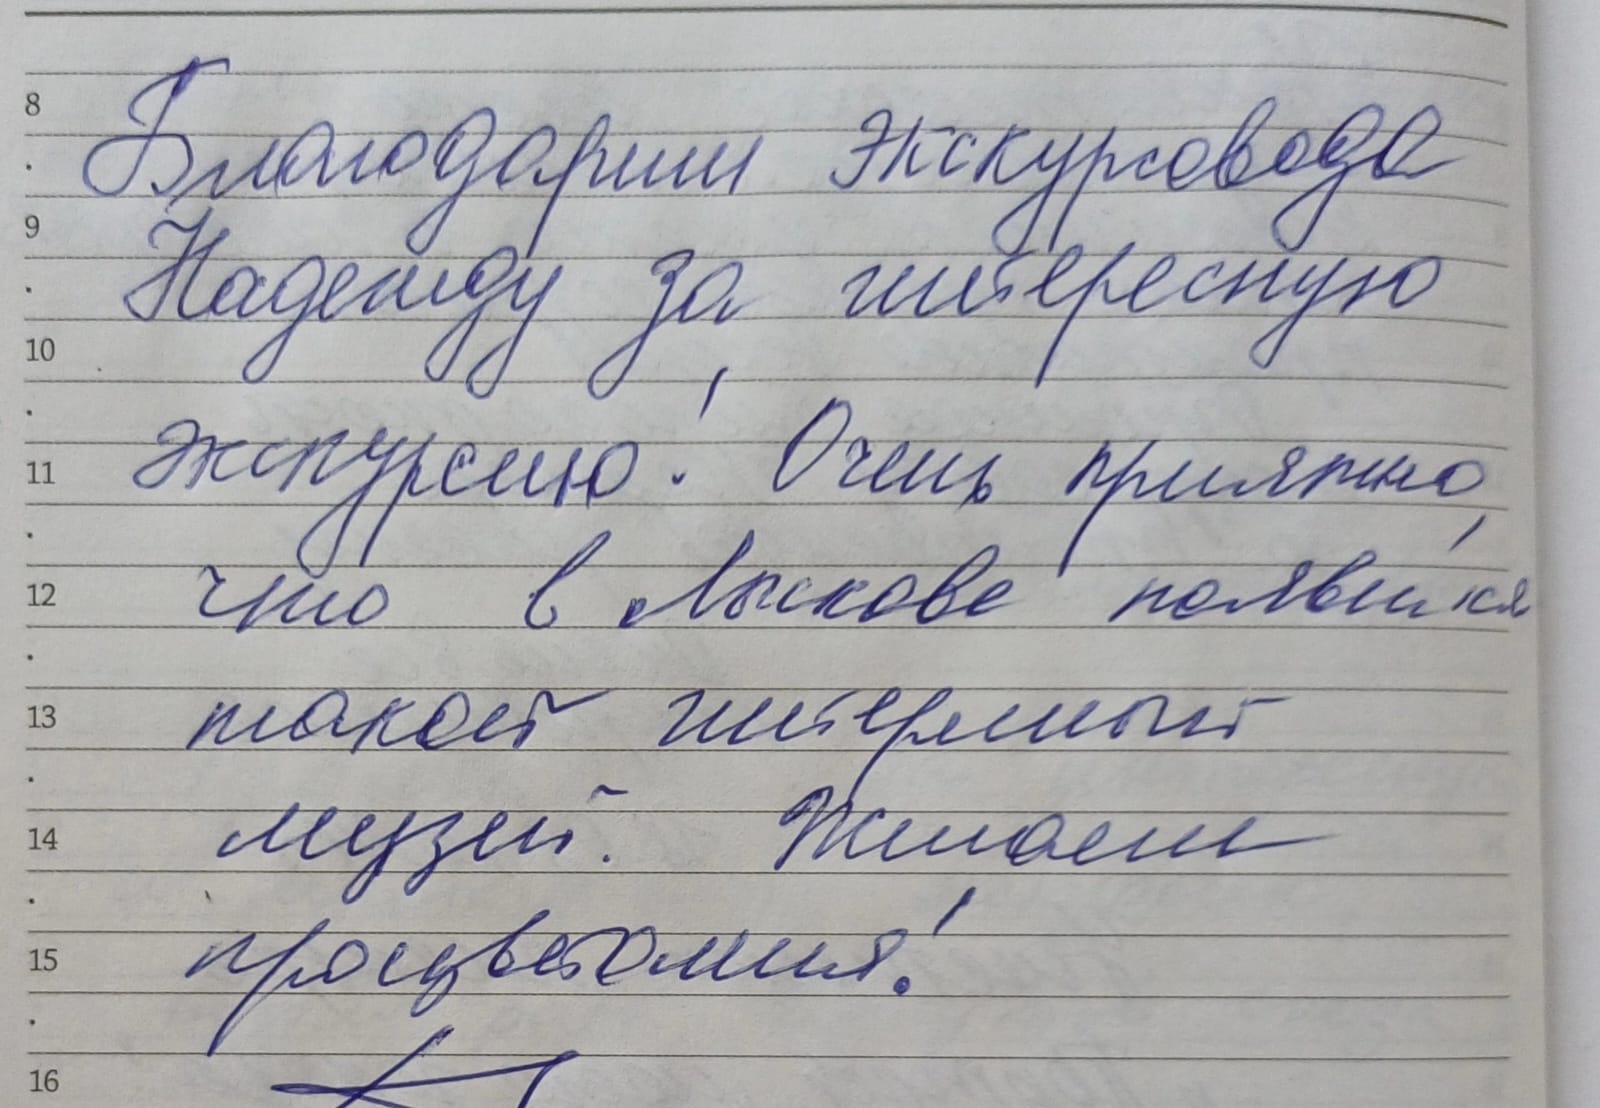 8
Благодарим экскурсовода
9
Надежду за интересную
10
экскурсию! Очень приятно
11
что в Лыскове появился
12
такой интересный
13
музей. Желаем
14
процветания!
15
16